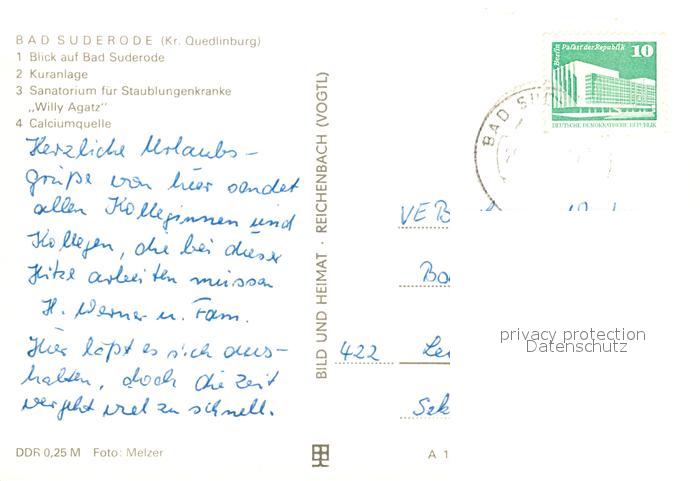 BAD SUDERODE (Kr. Quedlinburg)
1 Blick auf Bad Suderode
2 Kuranlage
3 Sanatorium für Staublungenkranke
„Willy Agatz"
4 Calciumquelle
Herzliche Urlaubs-
grüße von hier sendet
allen Kolleginnen und
Kollegen, die bei dieser
Hitze arbeiten müssen
H. Werner u. Fam.
Hier läßt es sich aus-
halten, doch die Zeit
vergeht viel zu schnell.
DDR 0,25 M Foto: Melzer
BILD UND HEIMAT · REICHENBACH (VOGTL)
Berlin Palast der Republik 10
DEUTSCHE DEMOKRATISCHE REPUBLIK
BAD SUD
VEB
422
A 1
privacy protection
Datenschutz